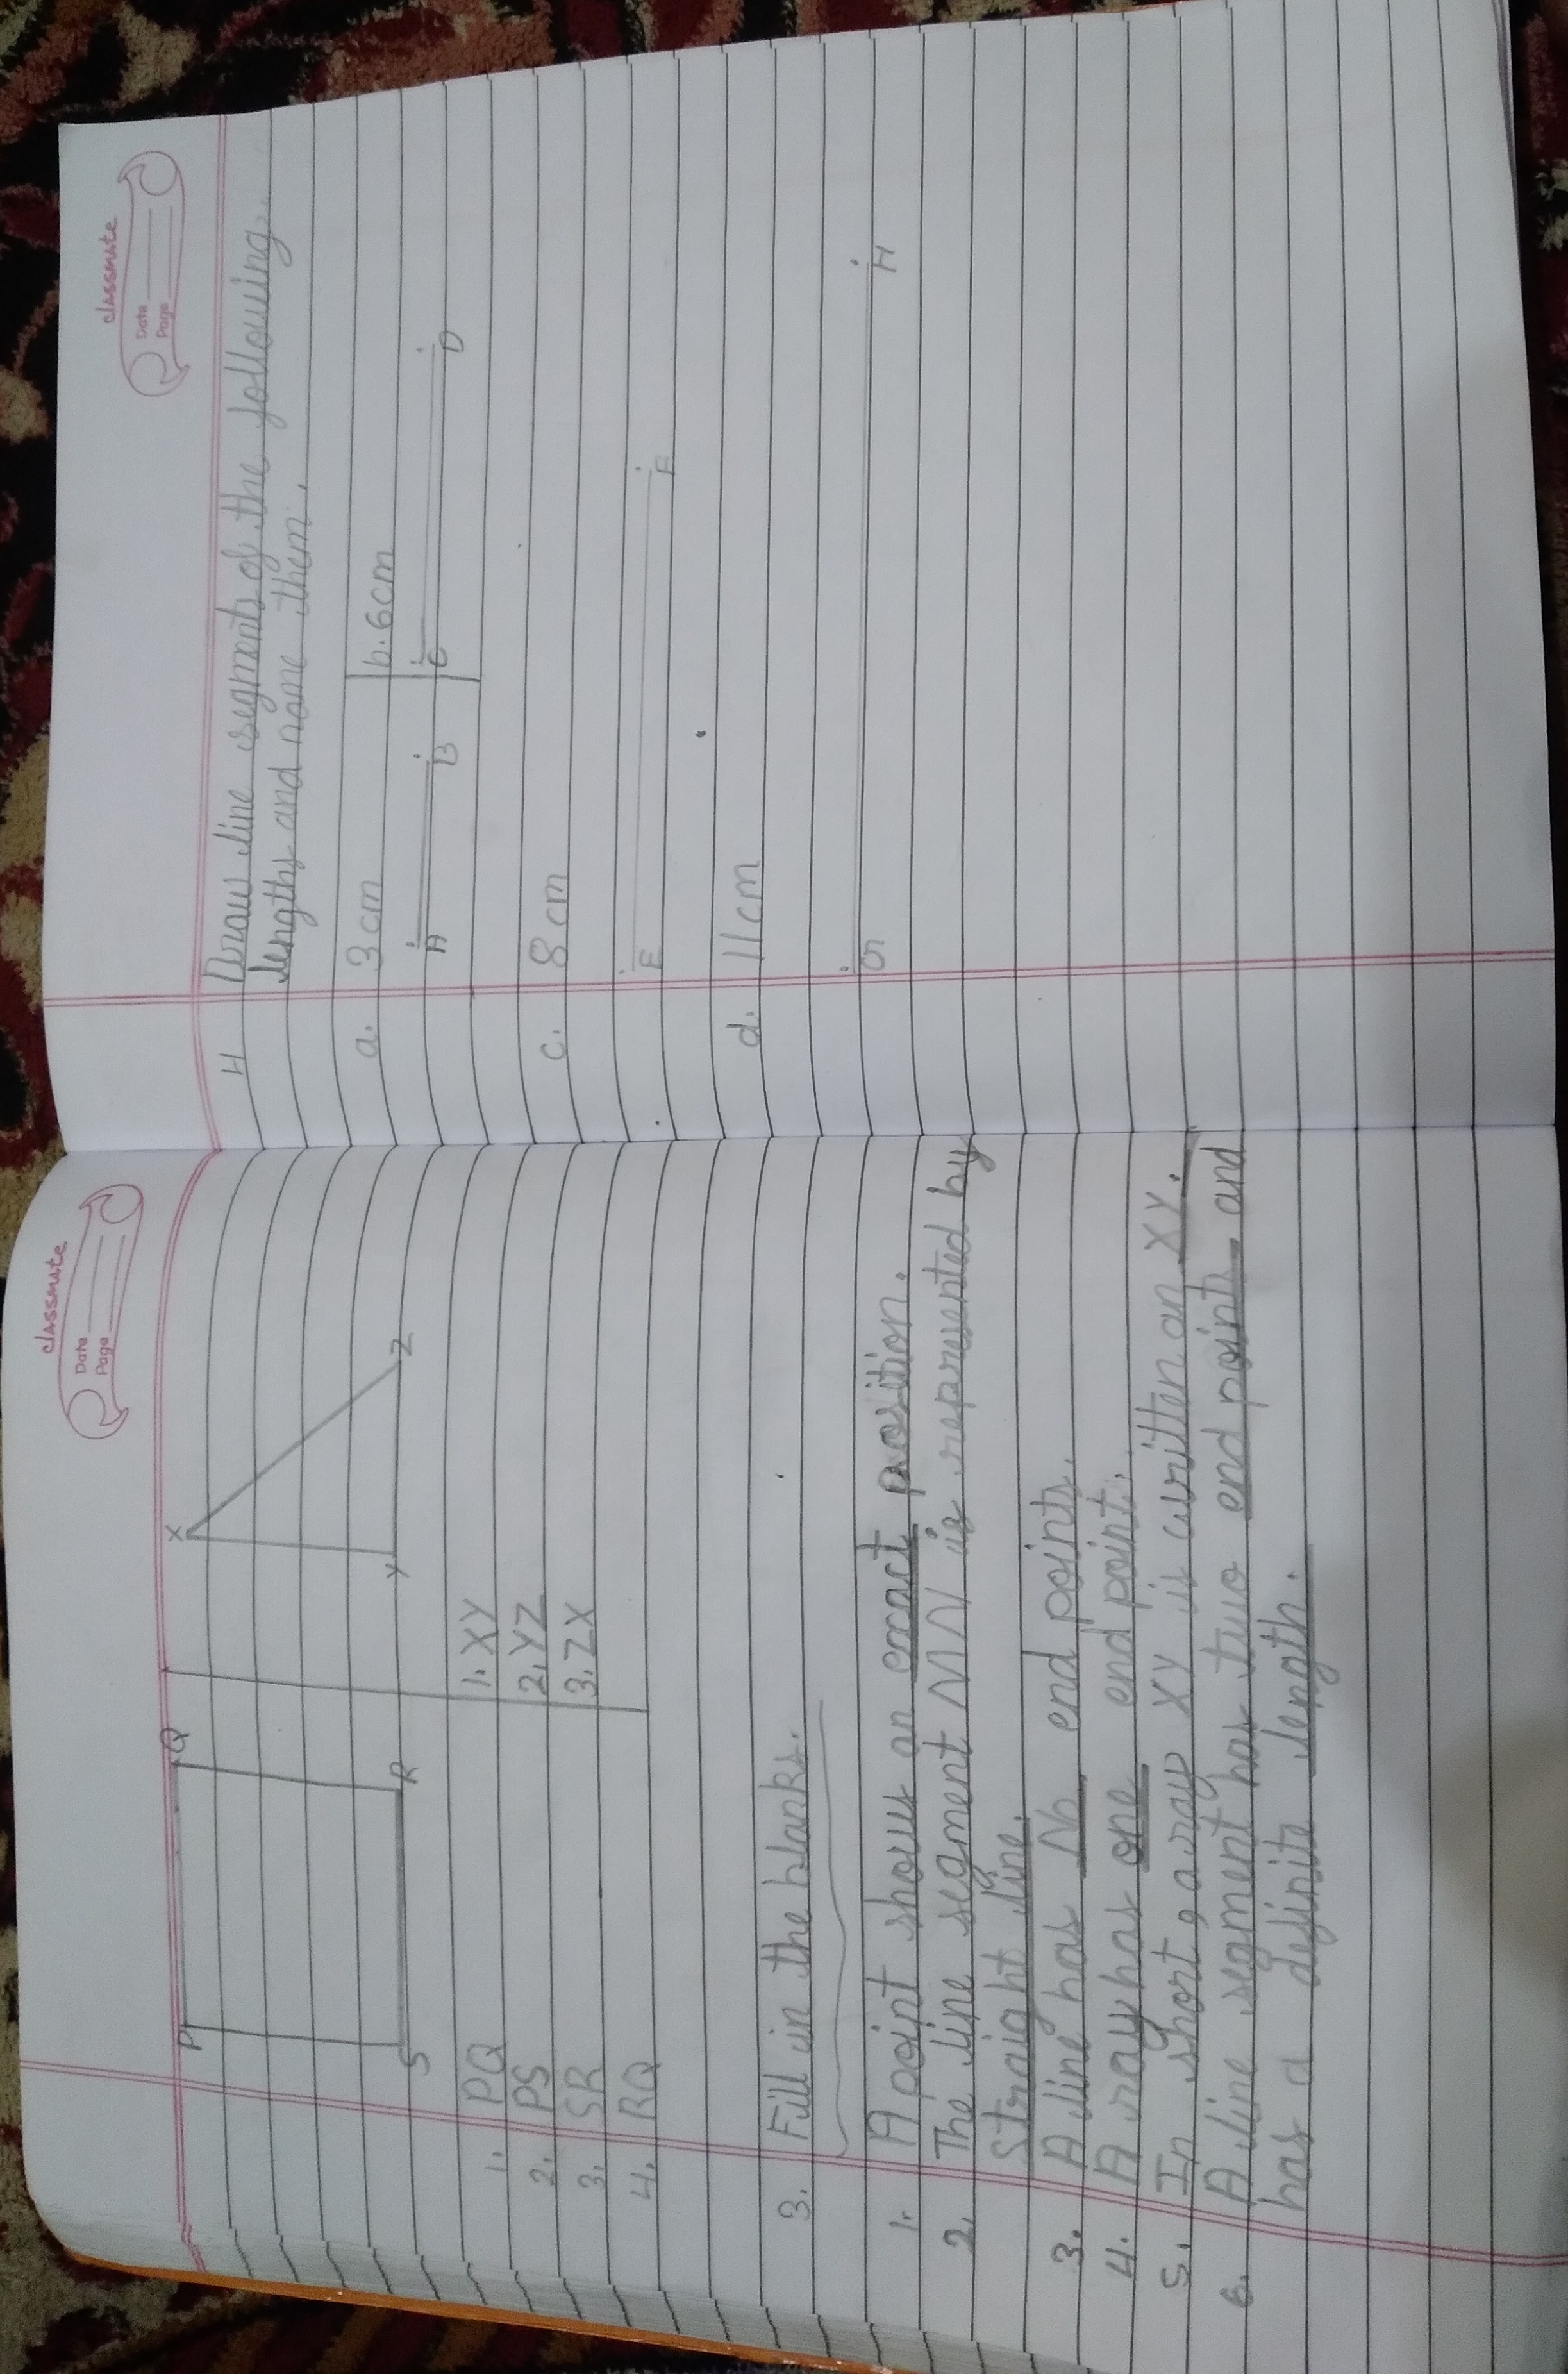 classmate
Date
Page
P Q
S R
X
Y Z
1. PQ
2. PS
3. SR
4. RQ
1. XY
2. YZ
3. ZX
3. Fill in the blanks.
1. A point shows an exact position.
2. The line segment MN is represented by
Straight line.
3. A line has No end points.
4. A ray has one end point.
5. In short, a ray XY is written an XY.
6. A line segment has two end points and
has a definite length.
classmate
Date
Page
4 Draw line segments of the following
lengths and name them.
a. 3 cm b. 6 cm
A B C D
c. 8 cm
E F
d. 11 cm
G H